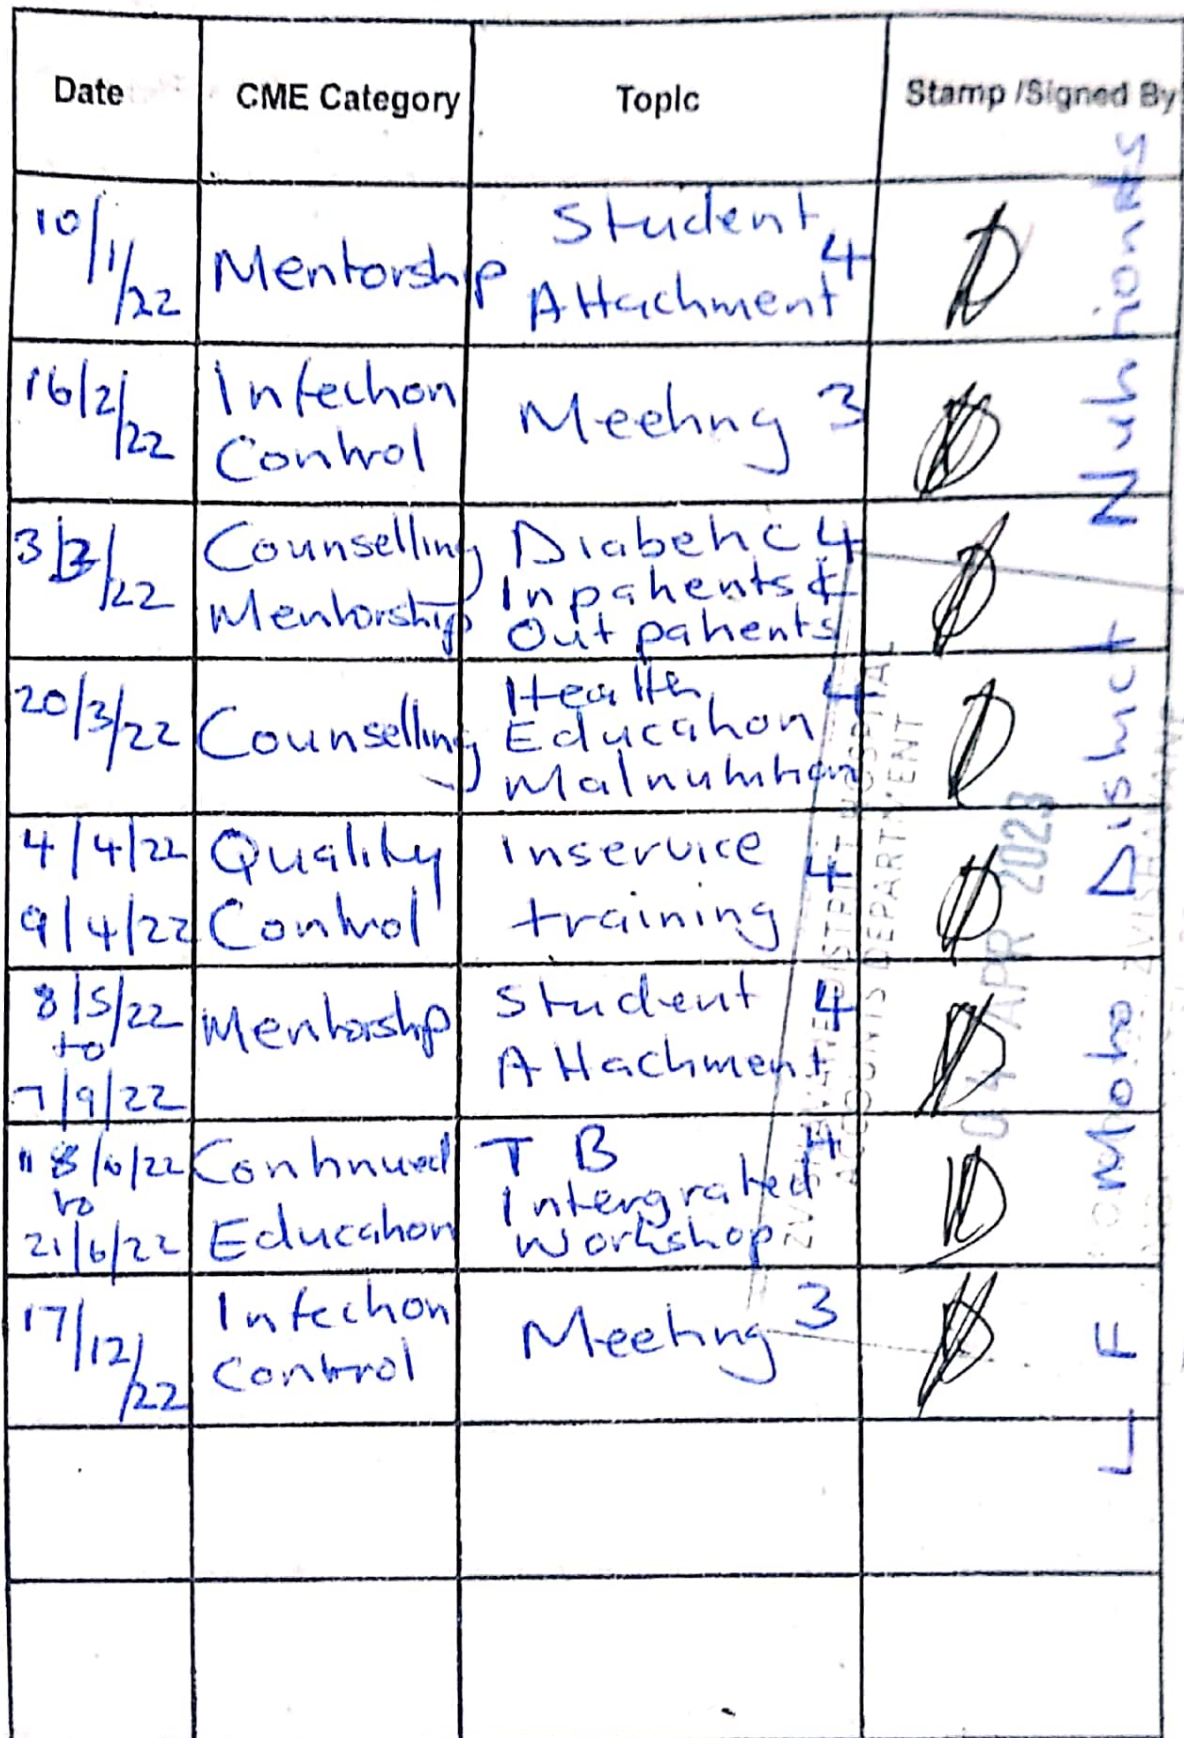 Date CME Category Topic Stamp /Signed By
10/1/22 Mentorship Student Attachment 4
16/2/22 Infection Control Meeting 3
3/3/22 Counselling Mentorship Diabetic Inpatients & Out patients 4
20/3/22 Counselling Health Education Malnutrition 4
4/4/22 9/4/22 Quality Control Inservice training 4
8/5/22 to 7/9/22 Mentorship Student Attachment 4
18/6/22 to 21/6/22 Continued Education TB Intergrated Workshop 4
17/12/22 Infection Control Meeting 3
L F Moto District Nutritionist
DISTRICT HOSPITAL
ACCOUNTS DEPARTMENT
04 APR 2023